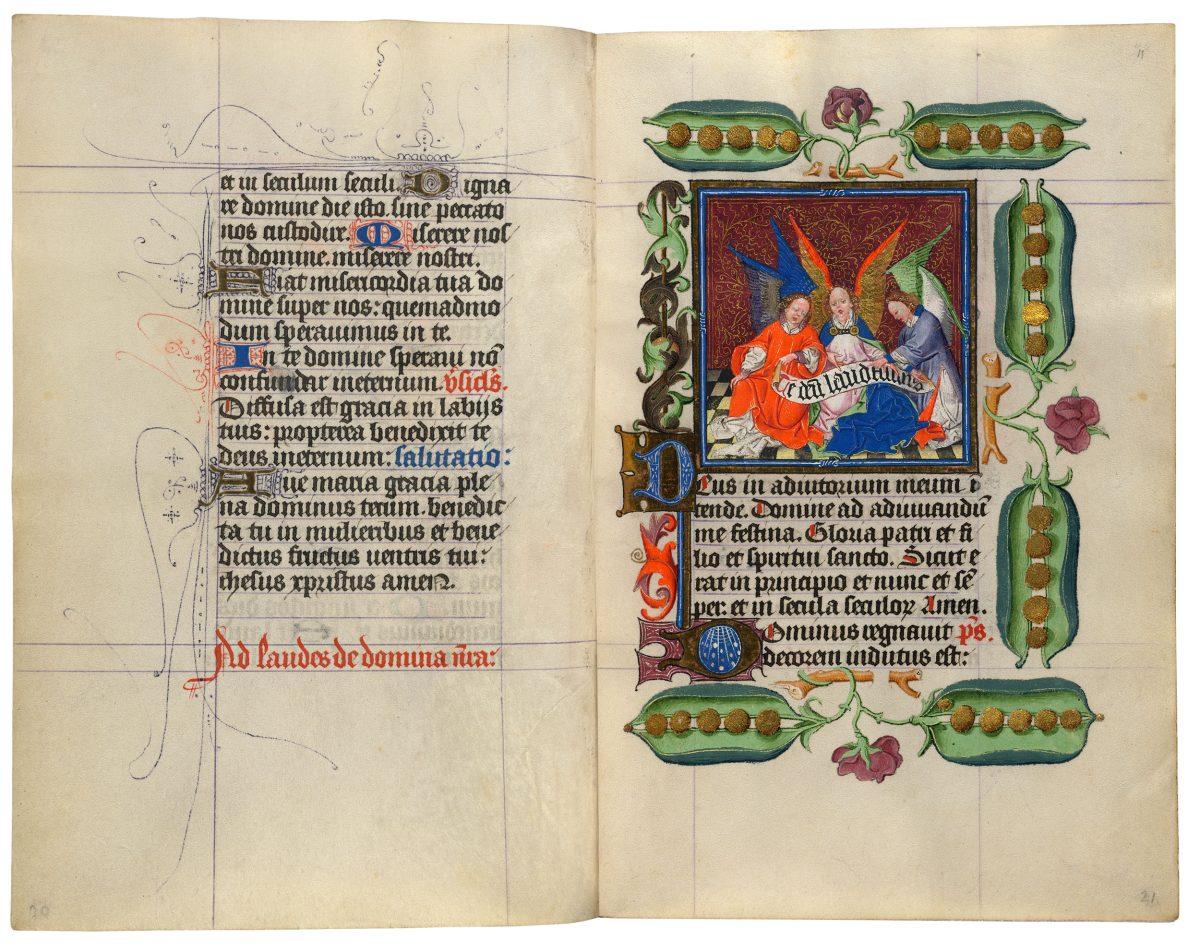 et in seculum seculi. Digna
re domine die isto. sine peccato
nos custodire. Miserere nos
tri domine. miserere nostri.
Fiat misericordia tua do
mine super nos: quemadmo
dum sperauimus in te.
In te domine speraui nō
confundar ineternum. v̄sicl̄s.
Diffusa est gracia in labijs
tuis: propterea benedixit te
deus ineternum: salutatio:
Aue maria gracia ple
na dominus tecum. benedic
ta tu in mulieribus et bene
dictus fructus uentris tui:
ihesus xpristus amen.
Ad laudes de domina n̄ra:
20
11
Te deū laudamus
Deus in adiutorium meum ī
tende. Domine ad adiuuandū
me festina. Gloria patri et fi
lio et spiritui sancto. Sicut e
rat in principio et nunc et sē
per: et in secula seculoꝝ Amen.
Dominus regnauit p̄s.
decorem indutus est:
21